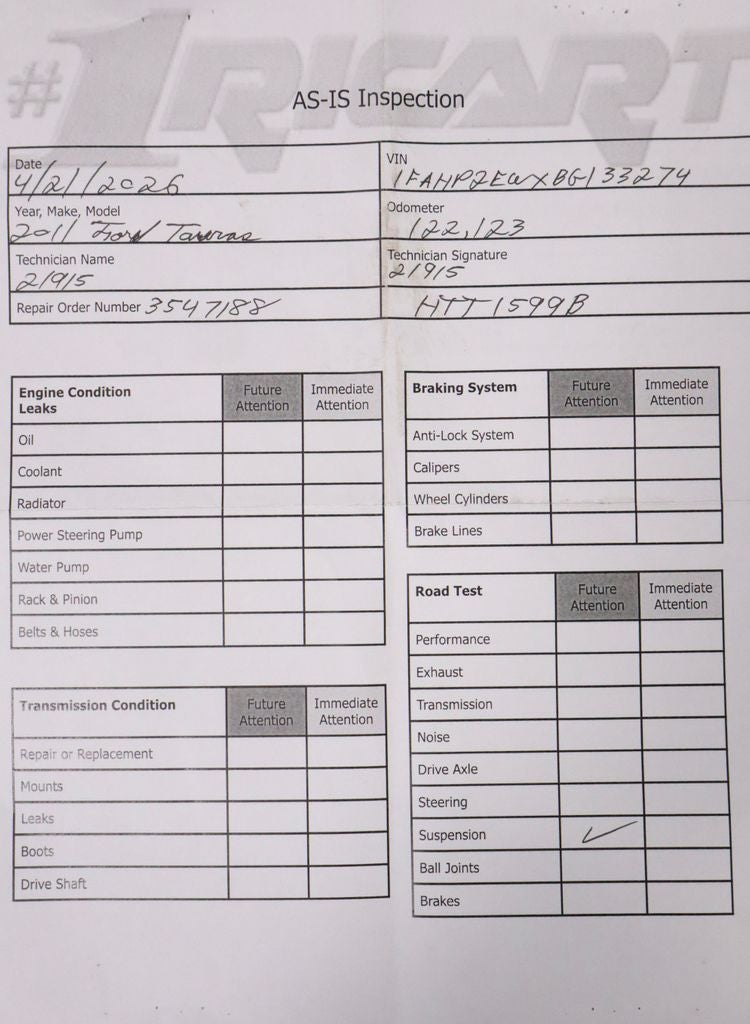 #1 RICART
AS-IS Inspection
Date 4/21/2026
VIN 1FAHP2EWXBG133274
Year, Make, Model 2011 Ford Taurus
Odometer 122,123
Technician Name 21915
Technician Signature 21915
Repair Order Number 3547188
HTT1599B
Engine Condition Leaks Future Attention Immediate Attention
Oil
Coolant
Radiator
Power Steering Pump
Water Pump
Rack & Pinion
Belts & Hoses
Braking System Future Attention Immediate Attention
Anti-Lock System
Calipers
Wheel Cylinders
Brake Lines
Transmission Condition Future Attention Immediate Attention
Repair or Replacement
Mounts
Leaks
Boots
Drive Shaft
Road Test Future Attention Immediate Attention
Performance
Exhaust
Transmission
Noise
Drive Axle
Steering
Suspension ✓
Ball Joints
Brakes